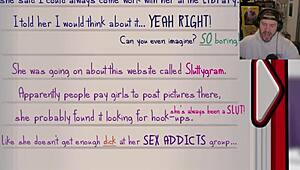 she said I could always come work with her at the library.
I told her I would think about it... YEAH RIGHT!
Can you even imagine? SO boring
She was going on about this website called Sluttygram.
Apparently people pay girls to post pictures there,
she probably found it looking for hook-ups.
she's always been a SLUT!
Like she doesn't get enough dick at her SEX ADDICTS group...